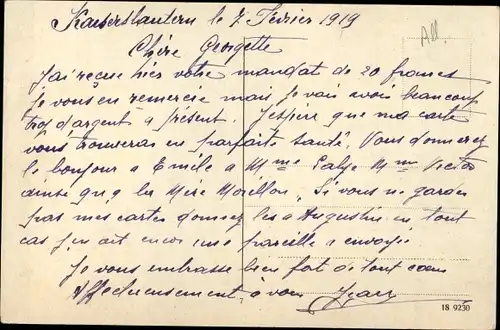 Kaiserslautern le 7 Février 1919
All.
Chère Georgette
J'ai reçue hier votre mandat de 20 francs
je vous en remercie mais je vais avoir beaucoup
trop d'argent a présent. J'espère que ma carte
vous trouveras en parfaite santé. Vous donnerez
le bonjour a Emile a Mme Mme Victor
ainsi qu'a la Mère Morillon, Si vous ne garder
pas mes cartes donnez les a Augustin en tout
cas j'en ait encor une pareille a envoyée
Je vous embrasse bien fort de tout coeur
Affectueusement a vous Jean
18 9230